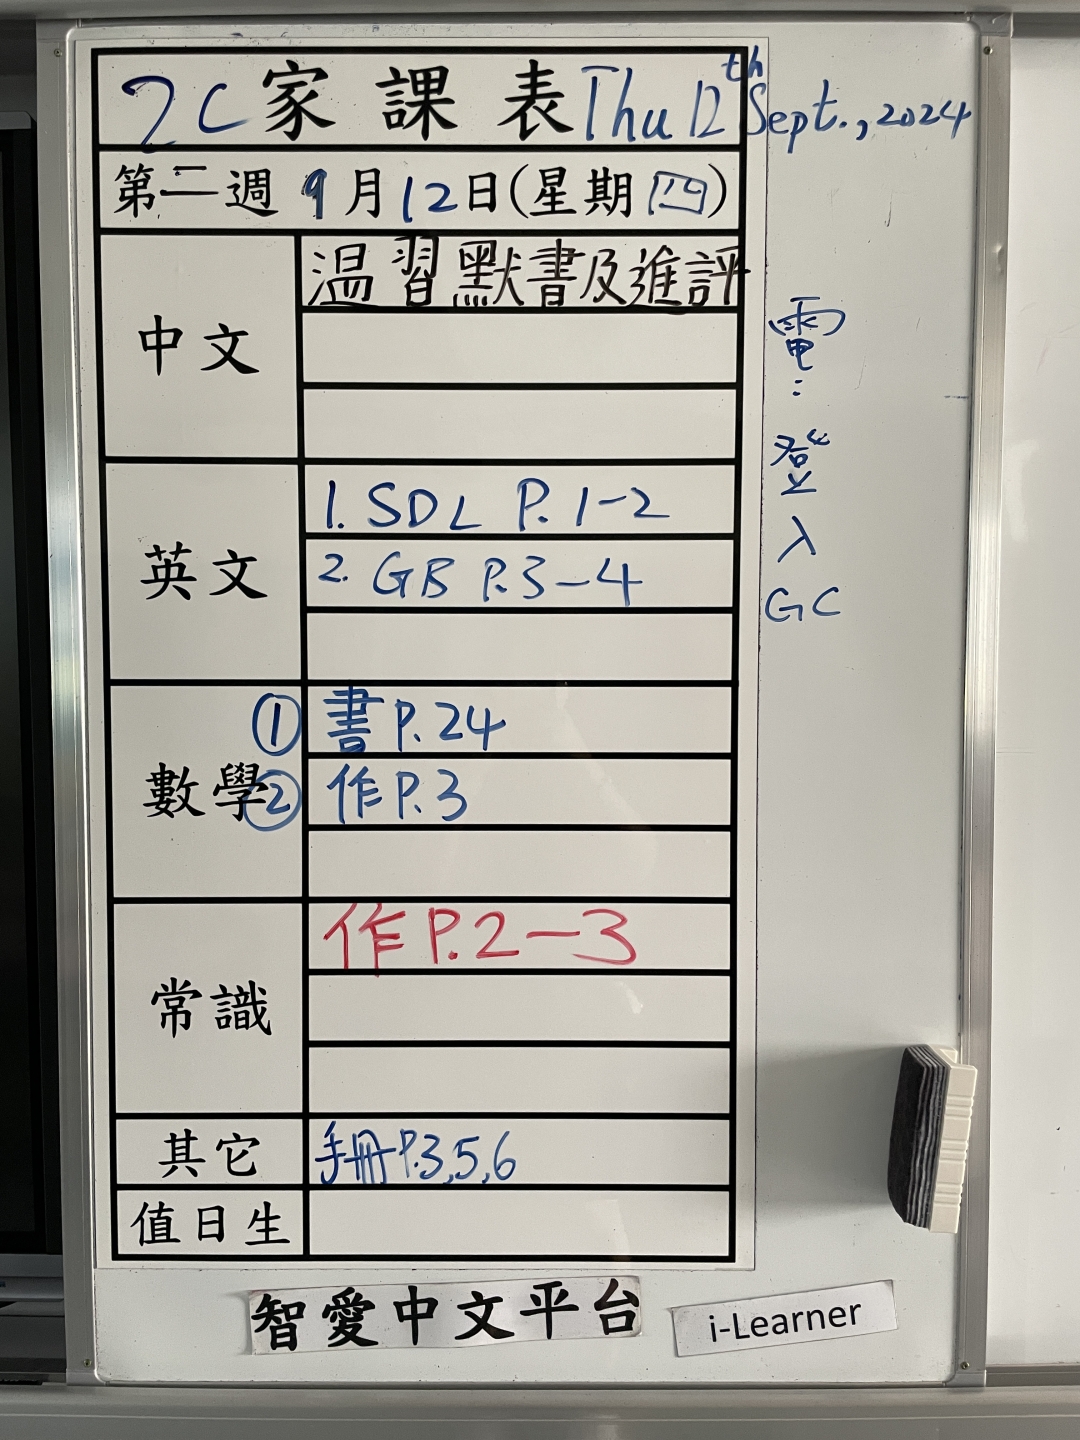 2C 家課表 Thu 12th Sept., 2024
第二週 9月12日(星期四)
中文
温習默書及進評
英文
1. SDL P. 1-2
2. GB P.3-4
數學
① 書 P.24
② 作 P.3
常識
作 P.2-3
其它
手冊 P.3,5,6
值日生
電:
登
入
GC
智愛中文平台
i-Learner